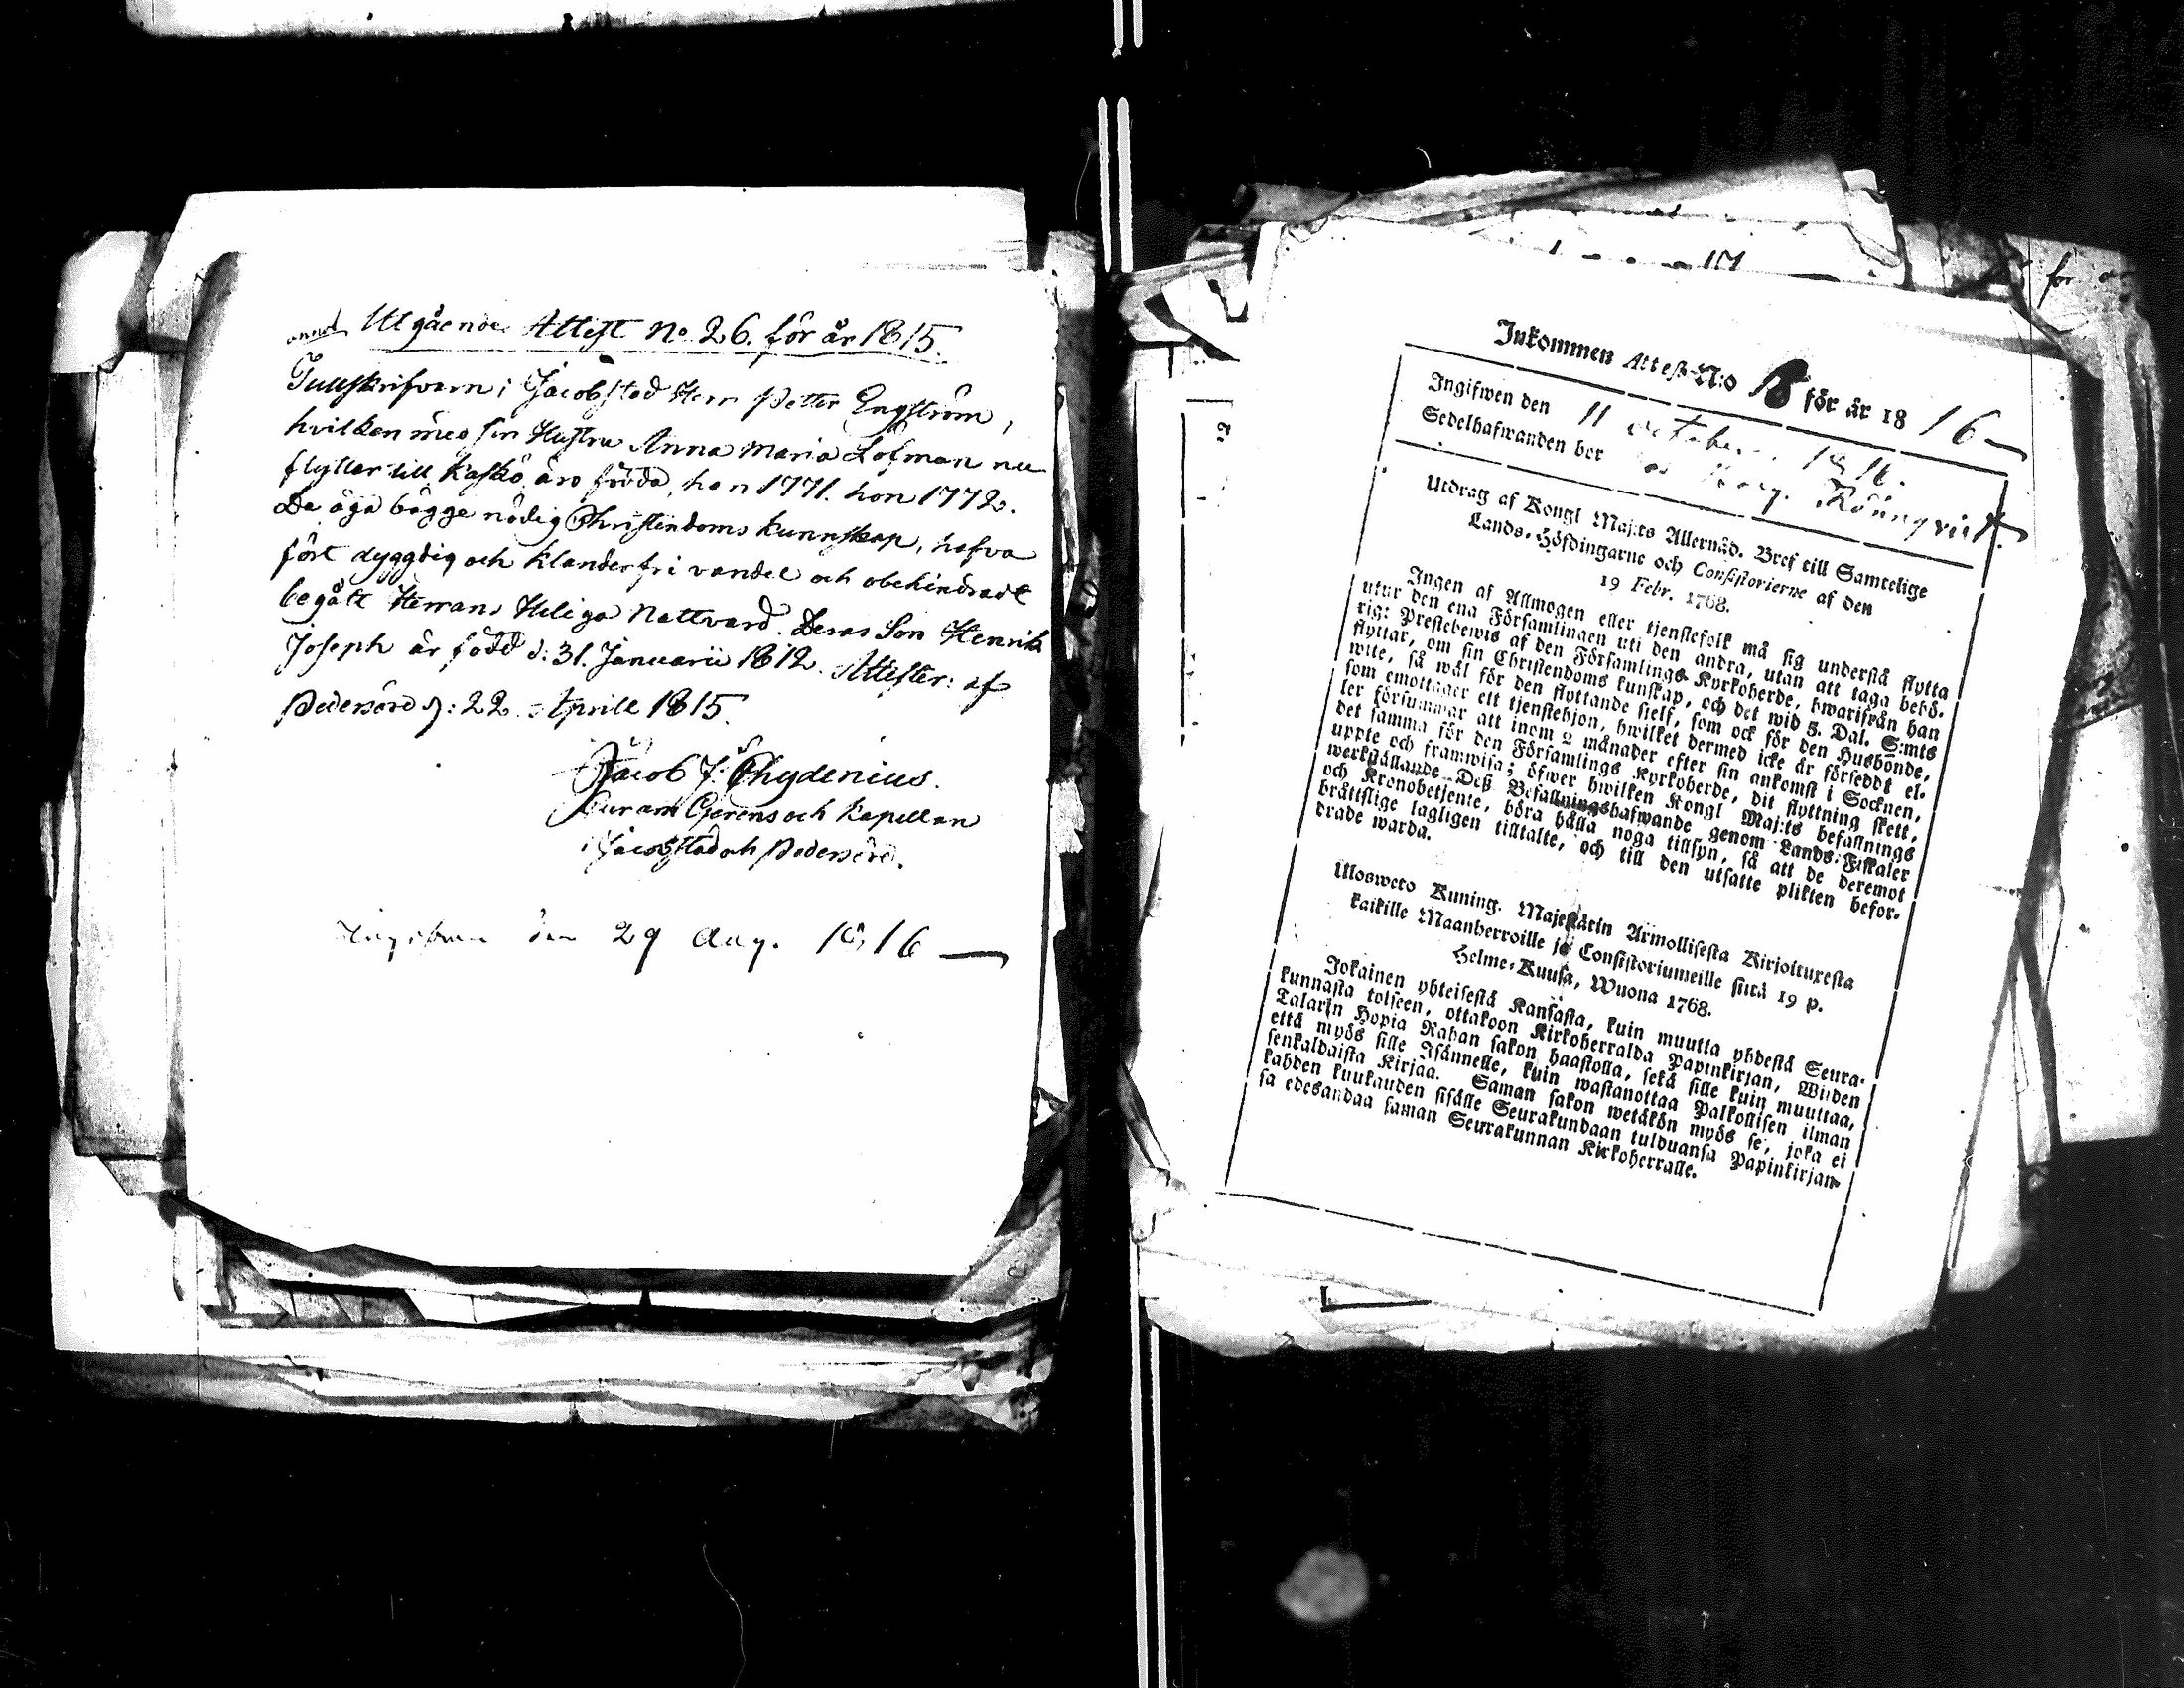 Utgående Attest No 26. för år 1815.
Tullskrifvarn i Jacobstad Herr Petter Engström,
hvilken med sin Hustru Anna Maria Lofman nu
flyttar till Kaskö, äro födda, han 1771. hon 1772.
De äga bägge nödig Christendoms kunnskap, hafva
fört dygdig och klanderfri vandel och obehindradt
begått Herrans Heliga Nattvard. Deras Son Henrik
Joseph är född d: 31. Januarii 1812. Attester: af
Pedersöre d: 22 Aprill 1815.
Jacob J: Chydenius.
Curam Gerens och Kapellan
i Jacobstad och Pedersöre.
Ingifven den 29 Aug. 1816
Inkommen Attest N:o för år 1816
Ingifwen den 11 october 1816.
Sedelhafwanden bor Rönnqvist.
Utdrag af Kongl Maj:ts Allernåd. Bref till Samtelige
Lands-Höfdingarne och Consistorierne af den
19 Febr. 1768.
Ingen af Allmogen eller tjenstefolk må sig understå flytta
utur den ena Församlingen uti den andra, utan att taga behö-
rigt Prestebewis af den Församlings Kyrkoherde, hwarifrån han
flyttar, om sin Christendoms kunskap, och det wid 5. Dal. S:mts
wite, så wäl för den flyttande sielf, som ock för den Husbonde,
som emottager ett tjenstehjon, hwilket dermed icke är försedt el-
ler försummar att inom 2 månader efter sin ankomst i Socknen,
det samma för den Församlings Kyrkoherde, dit flyttning skett,
uppte och framwisa; öfwer hwilken Kongl Maj:ts befallnings
werkställande Deß Befallningshafwande genom Lands-Fiskaler
och Kronobetjente, böra hålla noga tillsyn, så att de deremot
bråttslige lagligen tilltalte, och till den utsatte plikten befor-
drade warda.
Ulosweto Kuning. Majestätin Armollisesta Kirjoituxesta
kaikille Maanherroille ja Consistoriumeille siitä 19 p.
Helme-Kuusa, Wuona 1768.
Jokainen yhteisestä Kansasta, kuin muutta yhdestä Seura-
kunnasta toiseen, ottakoon Kirkoherralda Papinkirjan, Wiiden
Talarin Hopia Rahan sakon haastolla, sekä sille kuin muuttaa,
että myös sille Isännelle, kuin wastanottaa Palkollisen ilman
senkaldaista Kirjaa. Saman sakon wetäkön myös se, joka ei
kahden kuukauden sisälle Seurakundaan tulduansa Papinkirjan-
sa edesandaa saman Seurakunnan Kirkoherralle.